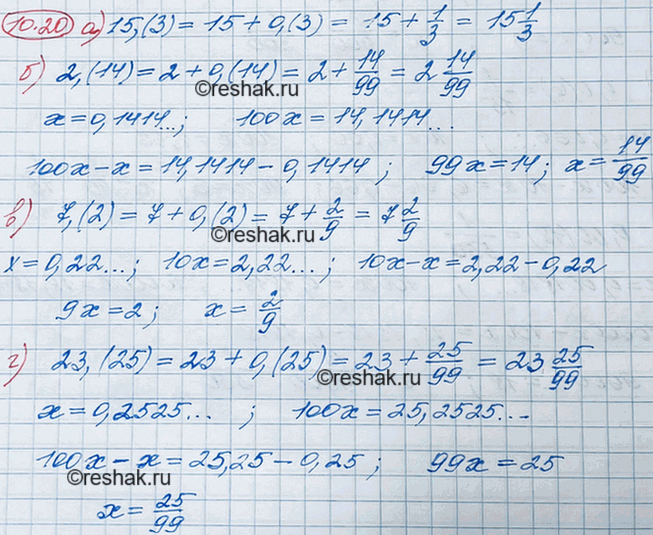 10.20 а) 15,(3) = 15 + 0,(3) = 15 + 1/3 = 15 1/3
б) 2,(14) = 2 + 0,(14) = 2 + 14/99 = 2 14/99
©reshak.ru
x = 0,1414...; 100x = 14,1414...
100x - x = 14,1414 - 0,1414; 99x = 14; x = 14/99
в) 7,(2) = 7 + 0,(2) = 7 + 2/9 = 7 2/9
©reshak.ru
x = 0,22...; 10x = 2,22...; 10x - x = 2,22 - 0,22
9x = 2; x = 2/9
г) 23,(25) = 23 + 0,(25) = 23 + 25/99 = 23 25/99
©reshak.ru
x = 0,2525...; 100x = 25,2525...
100x - x = 25,25 - 0,25; 99x = 25
©reshak.ru
x = 25/99